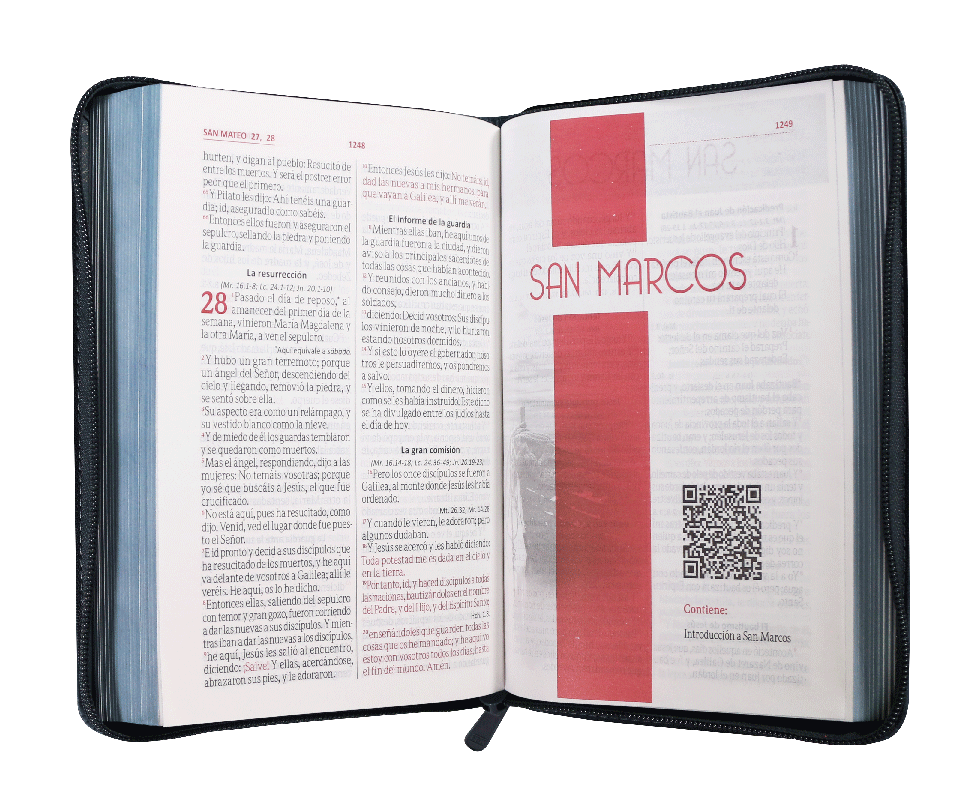 SAN MATEO 27, 28
1248
hurten, y digan al pueblo: Resucitó de
entre los muertos. Y será el postrer error
peor que el primero.
65 Y Pilato les dijo: Ahí tenéis una guar
dia; id, aseguradlo como sabéis.
66 Entonces ellos fueron y aseguraron el
sepulcro, sellando la piedra y poniendo
la guardia.
La resurrección
(Mr. 16.1-8; Lc. 24.1-12; Jn. 20.1-10)
28 1 Pasado el día de reposo,* al
amanecer del primer día de la
semana, vinieron María Magdalena y
la otra María, a ver el sepulcro.
*Aquí equivale a sábado
2 Y hubo un gran terremoto; porque
un ángel del Señor, descendiendo del
cielo y llegando, removió la piedra, y
se sentó sobre ella.
3 Su aspecto era como un relámpago, y
su vestido blanco como la nieve.
4 Y de miedo de él los guardas temblaron
y se quedaron como muertos.
5 Mas el ángel, respondiendo, dijo a las
mujeres: No temáis vosotras; porque
yo sé que buscáis a Jesús, el que fue
crucificado.
6 No está aquí, pues ha resucitado, como
dijo. Venid, ved el lugar donde fue pues-
to el Señor.
7 E id pronto y decid a sus discípulos que
ha resucitado de los muertos, y he aquí
va delante de vosotros a Galilea; allí le
veréis. He aquí, os lo he dicho.
8 Entonces ellas, saliendo del sepulcro
con temor y gran gozo, fueron corriendo
a dar las nuevas a sus discípulos. Y mien-
tras iban a dar las nuevas a los discípulos,
9 he aquí, Jesús les salió al encuentro,
diciendo: ¡Salve! Y ellas, acercándose,
abrazaron sus pies, y le adoraron.
10 Entonces Jesús les dijo: No temáis; id,
dad las nuevas a mis hermanos, para
que vayan a Galilea, y allí me verán.
El informe de la guardia
11 Mientras ellas iban, he aquí unos de
la guardia fueron a la ciudad, y dieron
aviso a los principales sacerdotes de
todas las cosas que habían acontecido.
12 Y reunidos con los ancianos, y habi
do consejo, dieron mucho dinero a los
soldados,
13 diciendo: Decid vosotros: Sus discípu
los vinieron de noche, y lo hurtaron,
estando nosotros dormidos.
14 Y si esto lo oyere el gobernador, noso
tros le persuadiremos, y os pondremos
a salvo.
15 Y ellos, tomando el dinero, hicieron
como se les había instruido. Este dicho
se ha divulgado entre los judíos hasta
el día de hoy.
La gran comisión
(Mr. 16.14-18; Lc. 24.36-49; Jn. 20.19-23)
16 Pero los once discípulos se fueron a
Galilea, al monte donde Jesús les había
ordenado.
Mt. 26.32; Mr. 14.28
17 Y cuando le vieron, le adoraron; pero
algunos dudaban.
18 Y Jesús se acercó y les habló diciendo:
Toda potestad me es dada en el cielo y
en la tierra.
19 Por tanto, id, y haced discípulos a todas
las naciones, bautizándolos en el nombre
del Padre, y del Hijo, y del Espíritu Santo;
Hch. 1.8
20 enseñándoles que guarden todas las
cosas que os he mandado; y he aquí yo
estoy con vosotros todos los días, hasta
el fin del mundo. Amén.
1249
SAN MARCOS
Contiene:
Introducción a San Marcos